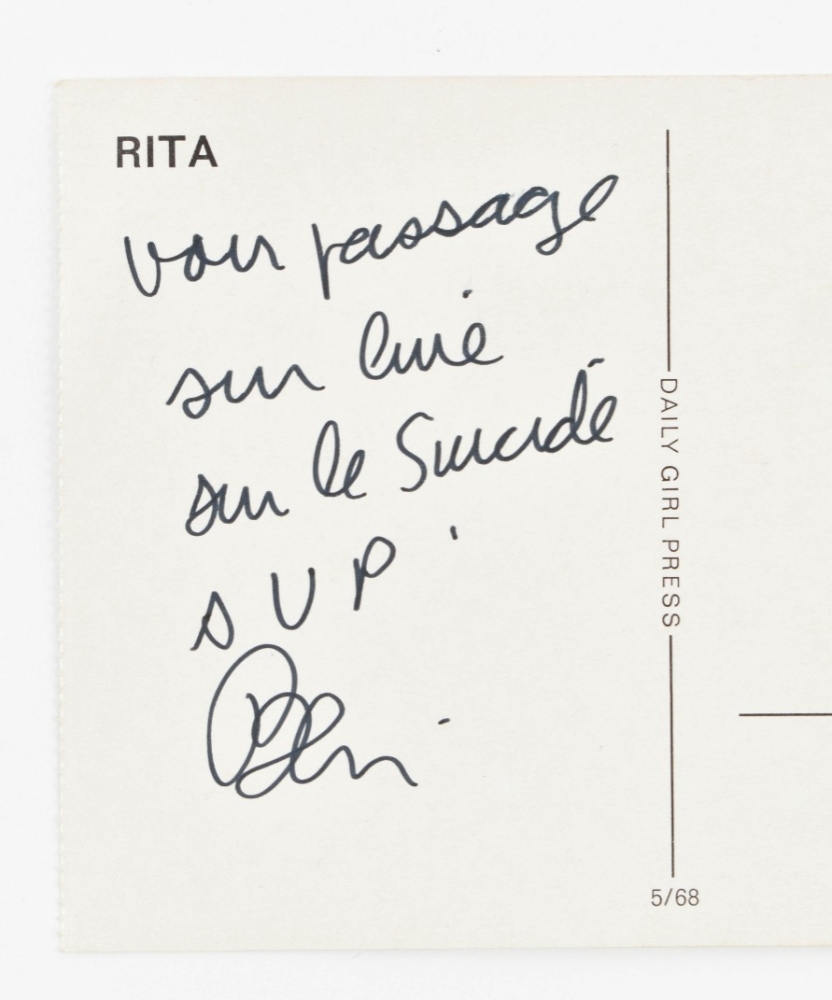 RITA
voir passage
sur
sur le Suicide
SVP.
DAILY GIRL PRESS
5/68